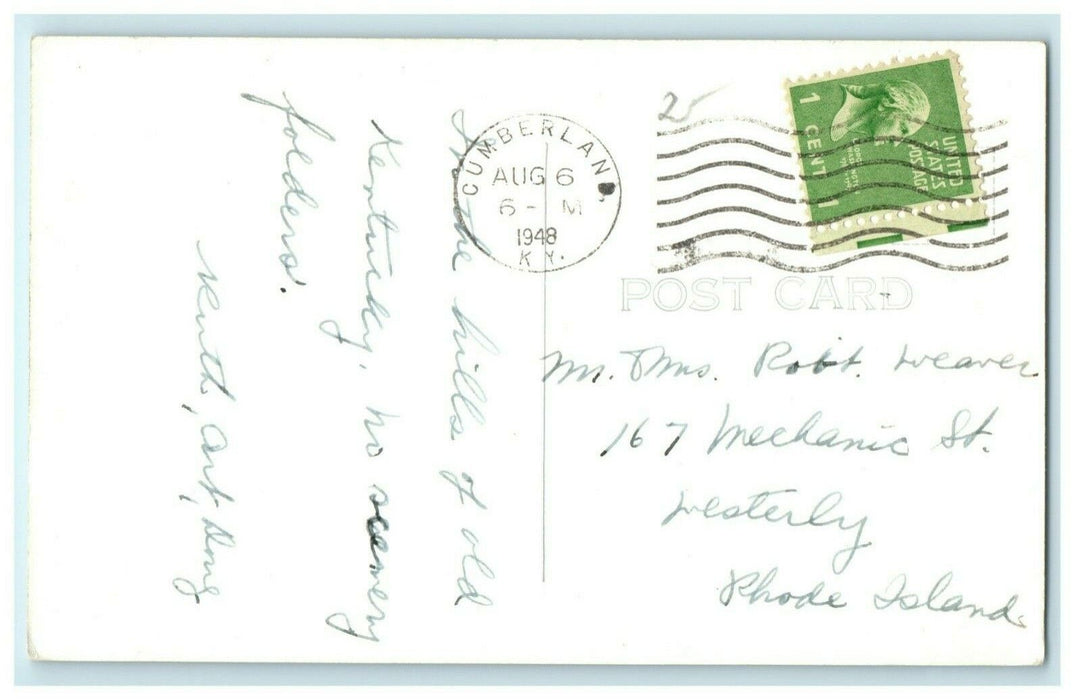 In the hills of old
Kentucky, no scenery
folders.
Ruth, Art, Doug
25
CUMBERLAND,
AUG 6
6 - M
1948
KY.
1 CENT 1
UNITED
STATES
POSTAGE
POST CARD
Mr. & Mrs. Robt. Weaver
167 Mechanic St.
Westerly
Rhode Island